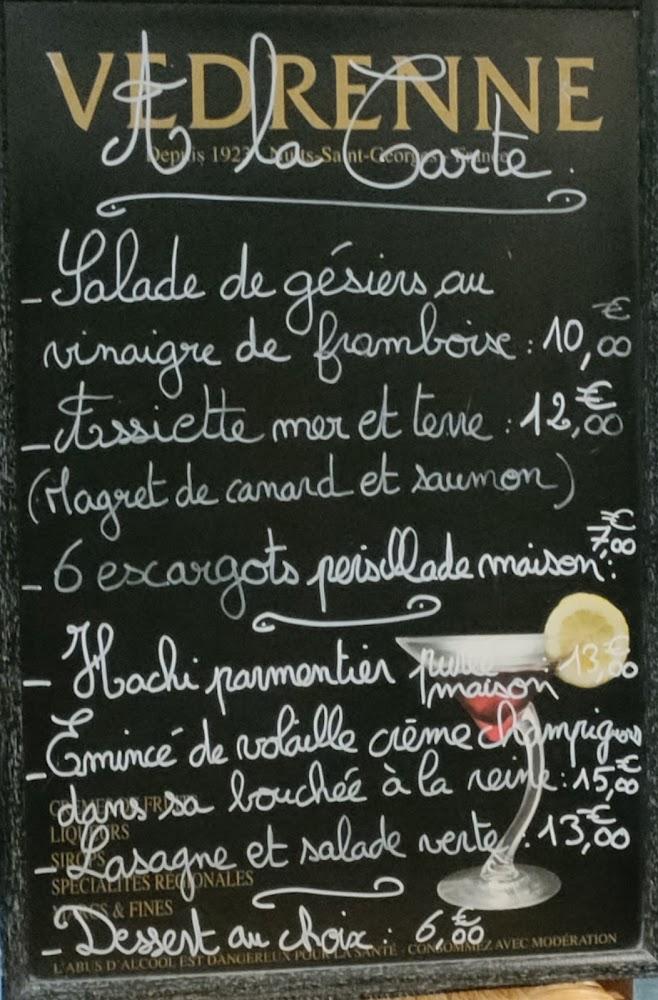 VEDRENNE
A la Carte
Depuis 1923 Nuits-Saint-Georges - France
- Salade de gésiers au
vinaigre de framboise : 10,00 €
- Assiette mer et terre : 12,00 €
(Magret de canard et saumon)
- 6 escargots persillade maison : 7,00 €
- Hachi parmentier purée maison : 13,00 €
- Emincé de volaille crème champignons
dans sa bouchée à la reine : 15,00 €
- Lasagne et salade verte : 13,00 €
- Dessert au choix : 6,00 €
CRÈMES DE FRUITS
LIQUEURS
SIROPS
SPÉCIALITÉS RÉGIONALES
MARCS & FINES
L'ABUS D'ALCOOL EST DANGEREUX POUR LA SANTÉ - CONSOMMEZ AVEC MODÉRATION